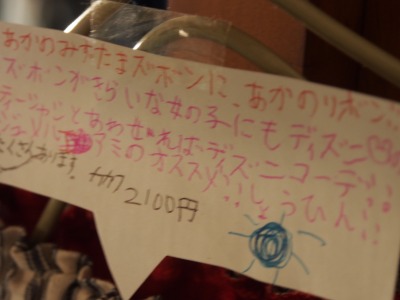 あかのみずたまズボンに、あかのリボン!!
ズボンがきらいな女の子にもディズニ
ティーシャツとあわせれば、ディズニコーデ!!
アミのオススメ!!しょうひん!!
たくさんあります。
2100円